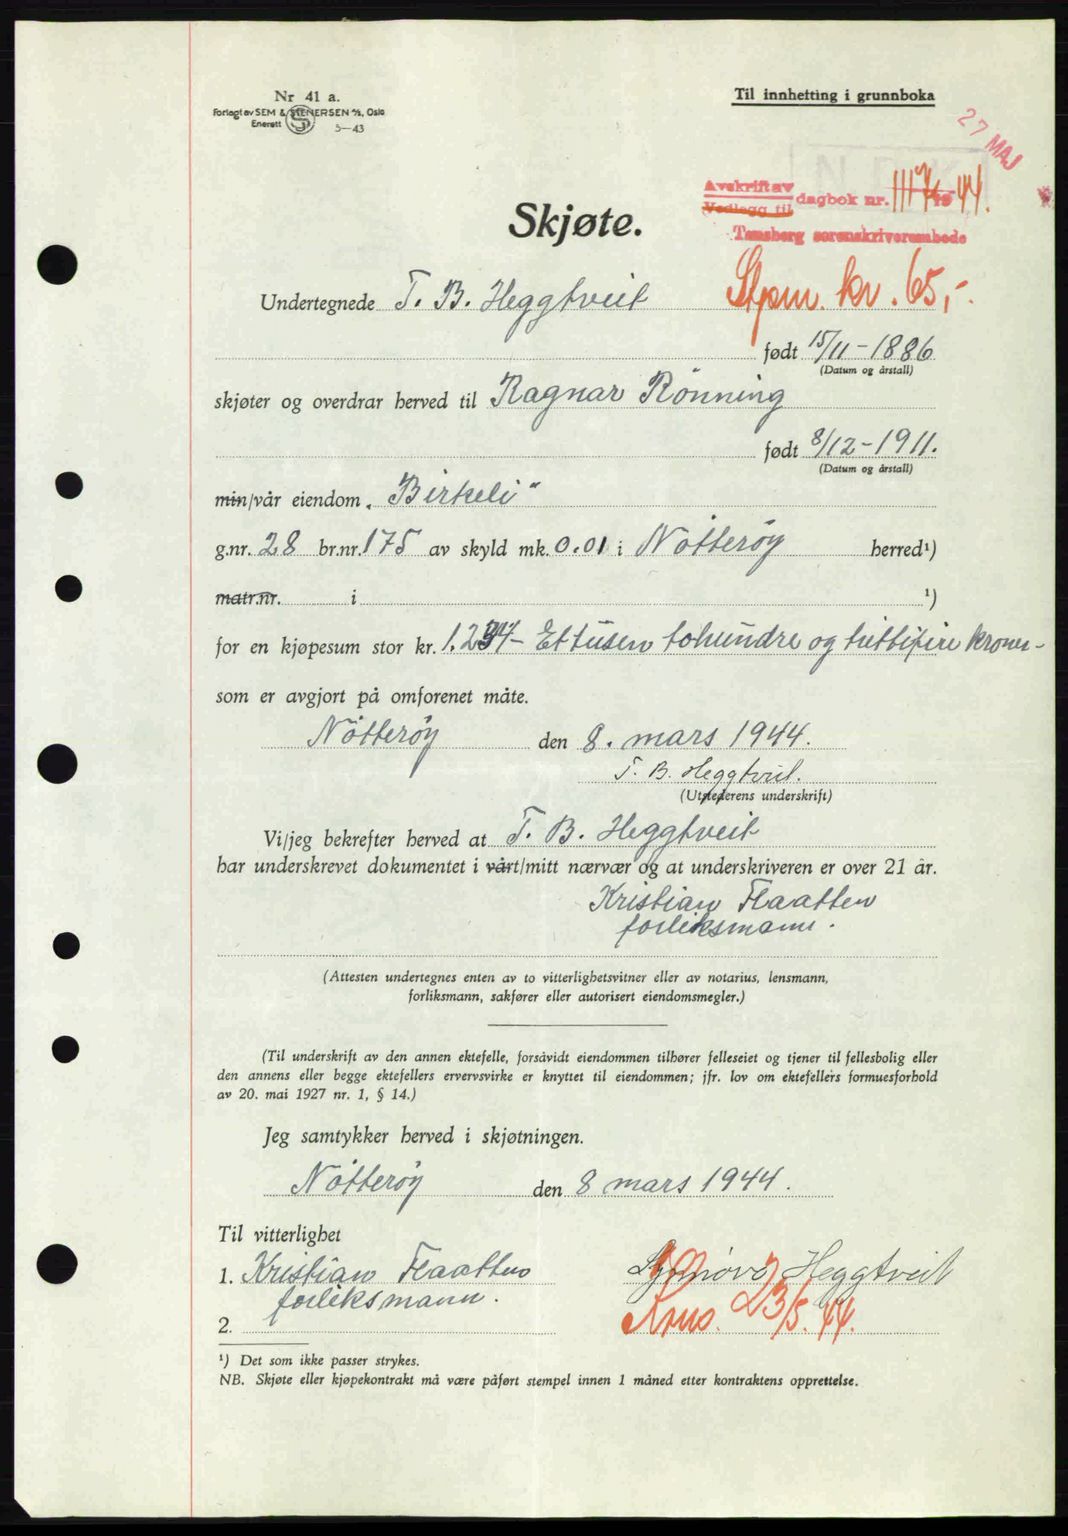 Nr 41 a.
Forlagt av SEM & STENERSEN A/S, Oslo
Enerett 5—43
Til innhefting i grunnboka
27 MAJ
Avskrift av
Vedlegg til
dagbok nr. 1117/19 44.
Tønsberg sorenskriverembede
Skjøte.
kr. 65,-.
Undertegnede T. B. Heggtveit
født 15/11-1886
(Datum og årstall)
skjøter og overdrar herved til Ragnar Rönning
født 8/12-1911.
(Datum og årstall)
min/vår eiendom „Birkeli“
g.nr. 28 br.nr. 175 av skyld mk. 0.01 i Nötteröy herred¹)
matr.nr. i ¹)
for en kjøpesum stor kr. 1.234- Ettusen tohundre og trettifire kroner-
som er avgjort på omforenet måte.
Nötteröy den 8. mars 1944.
T. B. Heggtveit.
(Utstederens underskrift)
Vi/jeg bekrefter herved at T. B. Heggtveit
har underskrevet dokumentet i vårt/mitt nærvær og at underskriveren er over 21 år.
Kristian Flaatten
forliksmann.
(Attesten undertegnes enten av to vitterlighetsvitner eller av notarius, lensmann,
forliksmann, sakfører eller autorisert eiendomsmegler.)
(Til underskrift av den annen ektefelle, forsåvidt eiendommen tilhører felleseiet og tjener til fellesbolig eller
den annens eller begge ektefellers ervervsvirke er knyttet til eiendommen; jfr. lov om ektefellers formuesforhold
av 20. mai 1927 nr. 1, § 14.)
Jeg samtykker herved i skjøtningen.
Nötteröy den 8 mars 1944.
Til vitterlighet
1. Kristian Flaatten Heggtveit
forliksmann.
23/5.44.
2.
¹) Det som ikke passer strykes.
NB. Skjøte eller kjøpekontrakt må være påført stempel innen 1 måned etter kontraktens opprettelse.